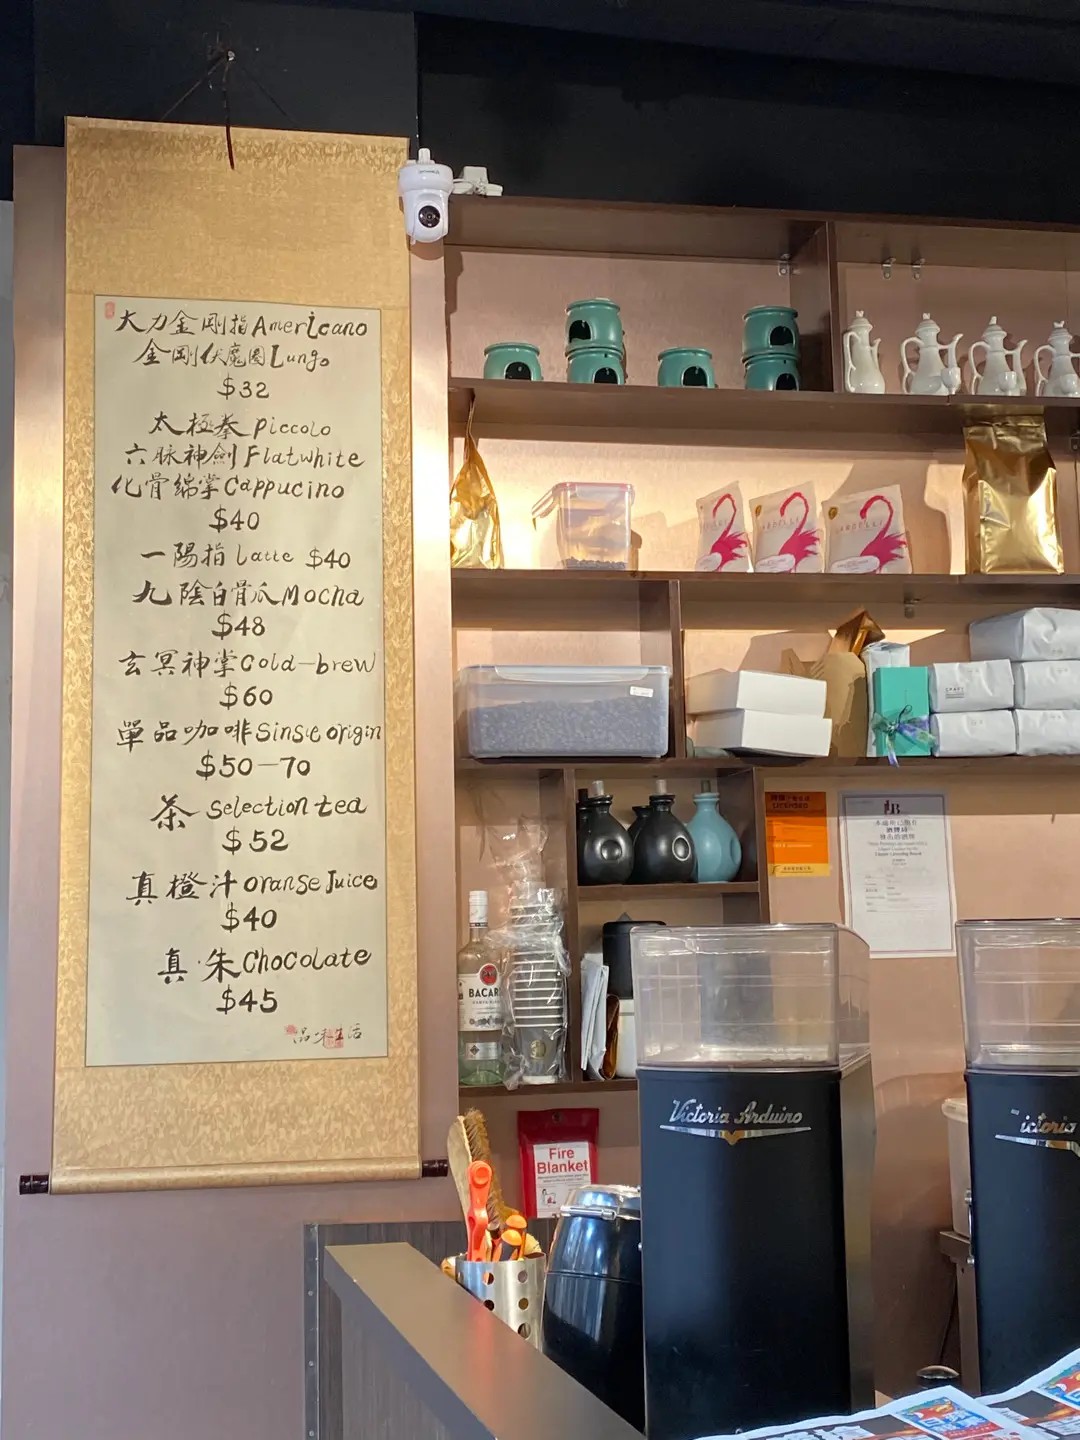 大力金剛指Americano
金剛伏魔圈Lungo
$32
太極拳 piccolo
六脉神劍Flatwhite
化骨綿掌Cappucino
$40
一陽指Latte $40
九陰白骨爪Mocha
$48
玄冥神掌Cold-brew
$60
單品咖啡Single origin
$50-70
茶 Selection tea
$52
真橙汁orange Juice
$40
真·朱Chocolate
$45
品味生活
BACARDI
LICENSED
Fire
Blanket
Victoria Arduino
ictoria